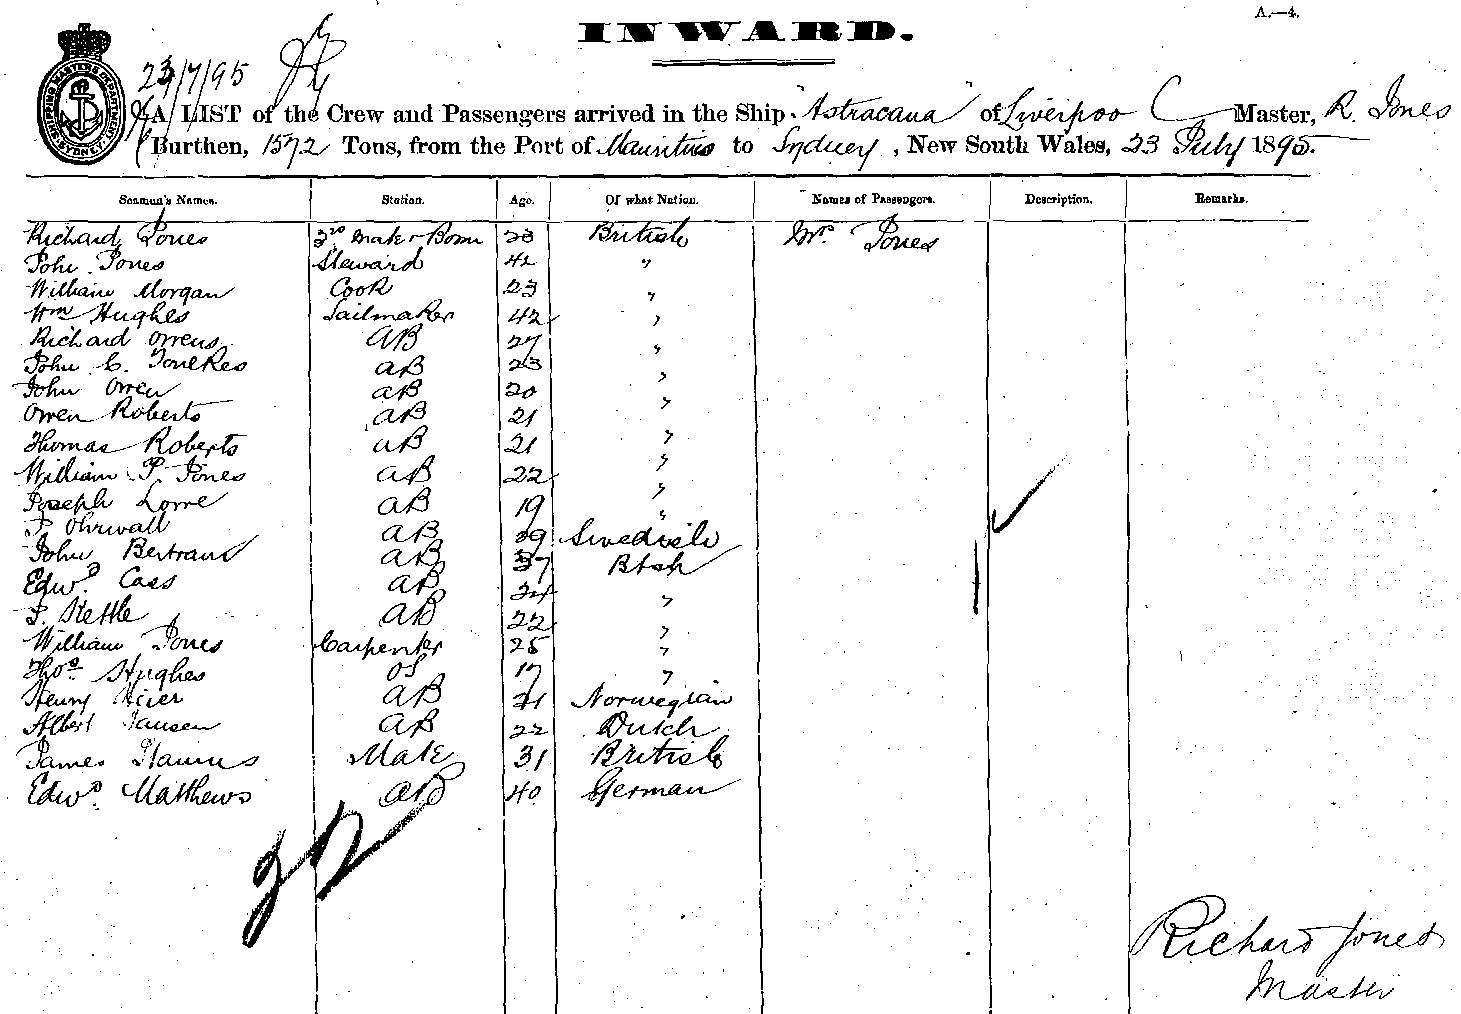 A.—4.
INWARD.
SHIPPING MASTERS DEPARTMENT SYDNEY
23/7/95
A LIST of the Crew and Passengers arrived in the Ship "Astracana" of Liverpool Master, R. Jones
Burthen, 1572 Tons, from the Port of Mauritius to Sydney, New South Wales, 23 July 1895.
Seamen's Names. Station. Age. Of what Nation. Names of Passengers. Description. Remarks.
Richard Jones Mate & Bosn 23 British Mrs Jones
John Jones Steward 42 "
William Morgan Cook 23 "
Wm Hughes Sailmaker 42 "
Richard Owens AB 27 "
John C. AB 23 "
John Owen AB 20 "
Owen Roberts AB 21 "
Thomas Roberts AB 21 "
William P. Jones AB 22 "
Joseph Lowe AB 19 "
Ohrwall AB 29 Swedish
John Bertram AB 37 Btsh
Edwd. Cass AB 24 "
Stettle AB 22 "
William Jones Carpenter 25 "
Thos Hughes OS 17 "
Henry Meier AB 21 Norwegian
Albert Jansen AB 22 Dutch
James Mate 31 British
Edwd. Matthews AB 40 German
22
Richard Jones
Master